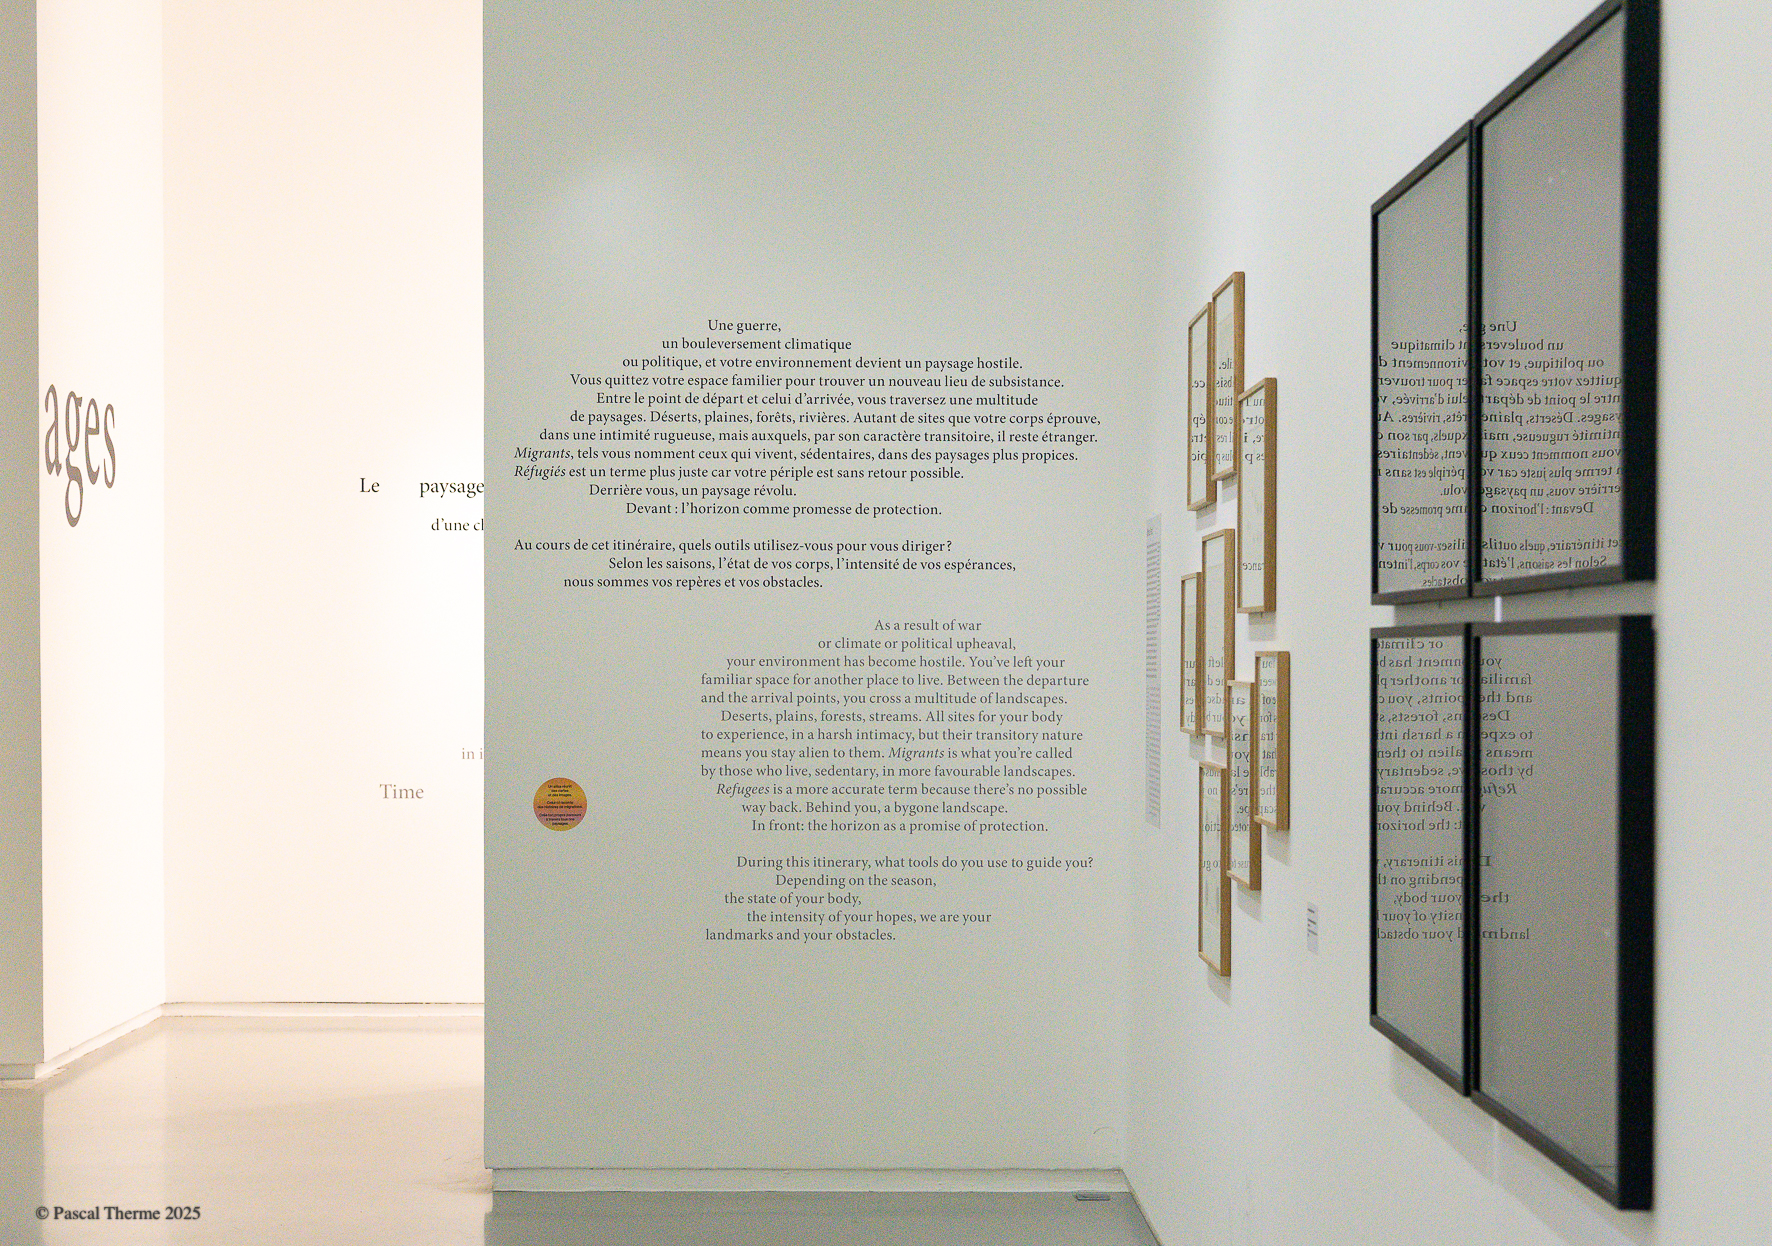 ages
Le paysage
d'une
in
Time
Une guerre,
un bouleversement climatique
ou politique, et votre environnement devient un paysage hostile.
Vous quittez votre espace familier pour trouver un nouveau lieu de subsistance.
Entre le point de départ et celui d'arrivée, vous traversez une multitude
de paysages. Déserts, plaines, forêts, rivières. Autant de sites que votre corps éprouve,
dans une intimité rugueuse, mais auxquels, par son caractère transitoire, il reste étranger.
Migrants, tels vous nomment ceux qui vivent, sédentaires, dans des paysages plus propices.
Réfugiés est un terme plus juste car votre périple est sans retour possible.
Derrière vous, un paysage révolu.
Devant : l'horizon comme promesse de protection.
Au cours de cet itinéraire, quels outils utilisez-vous pour vous diriger ?
Selon les saisons, l'état de vos corps, l'intensité de vos espérances,
nous sommes vos repères et vos obstacles.
As a result of war
or climate or political upheaval,
your environment has become hostile. You've left your
familiar space for another place to live. Between the departure
and the arrival points, you cross a multitude of landscapes.
Deserts, plains, forests, streams. All sites for your body
to experience, in a harsh intimacy, but their transitory nature
means you stay alien to them. Migrants is what you're called
by those who live, sedentary, in more favourable landscapes.
Refugees is a more accurate term because there's no possible
way back. Behind you, a bygone landscape.
In front: the horizon as a promise of protection.
During this itinerary, what tools do you use to guide you?
Depending on the season,
the state of your body,
the intensity of your hopes, we are your
landmarks and your obstacles.
© Pascal Therme 2025